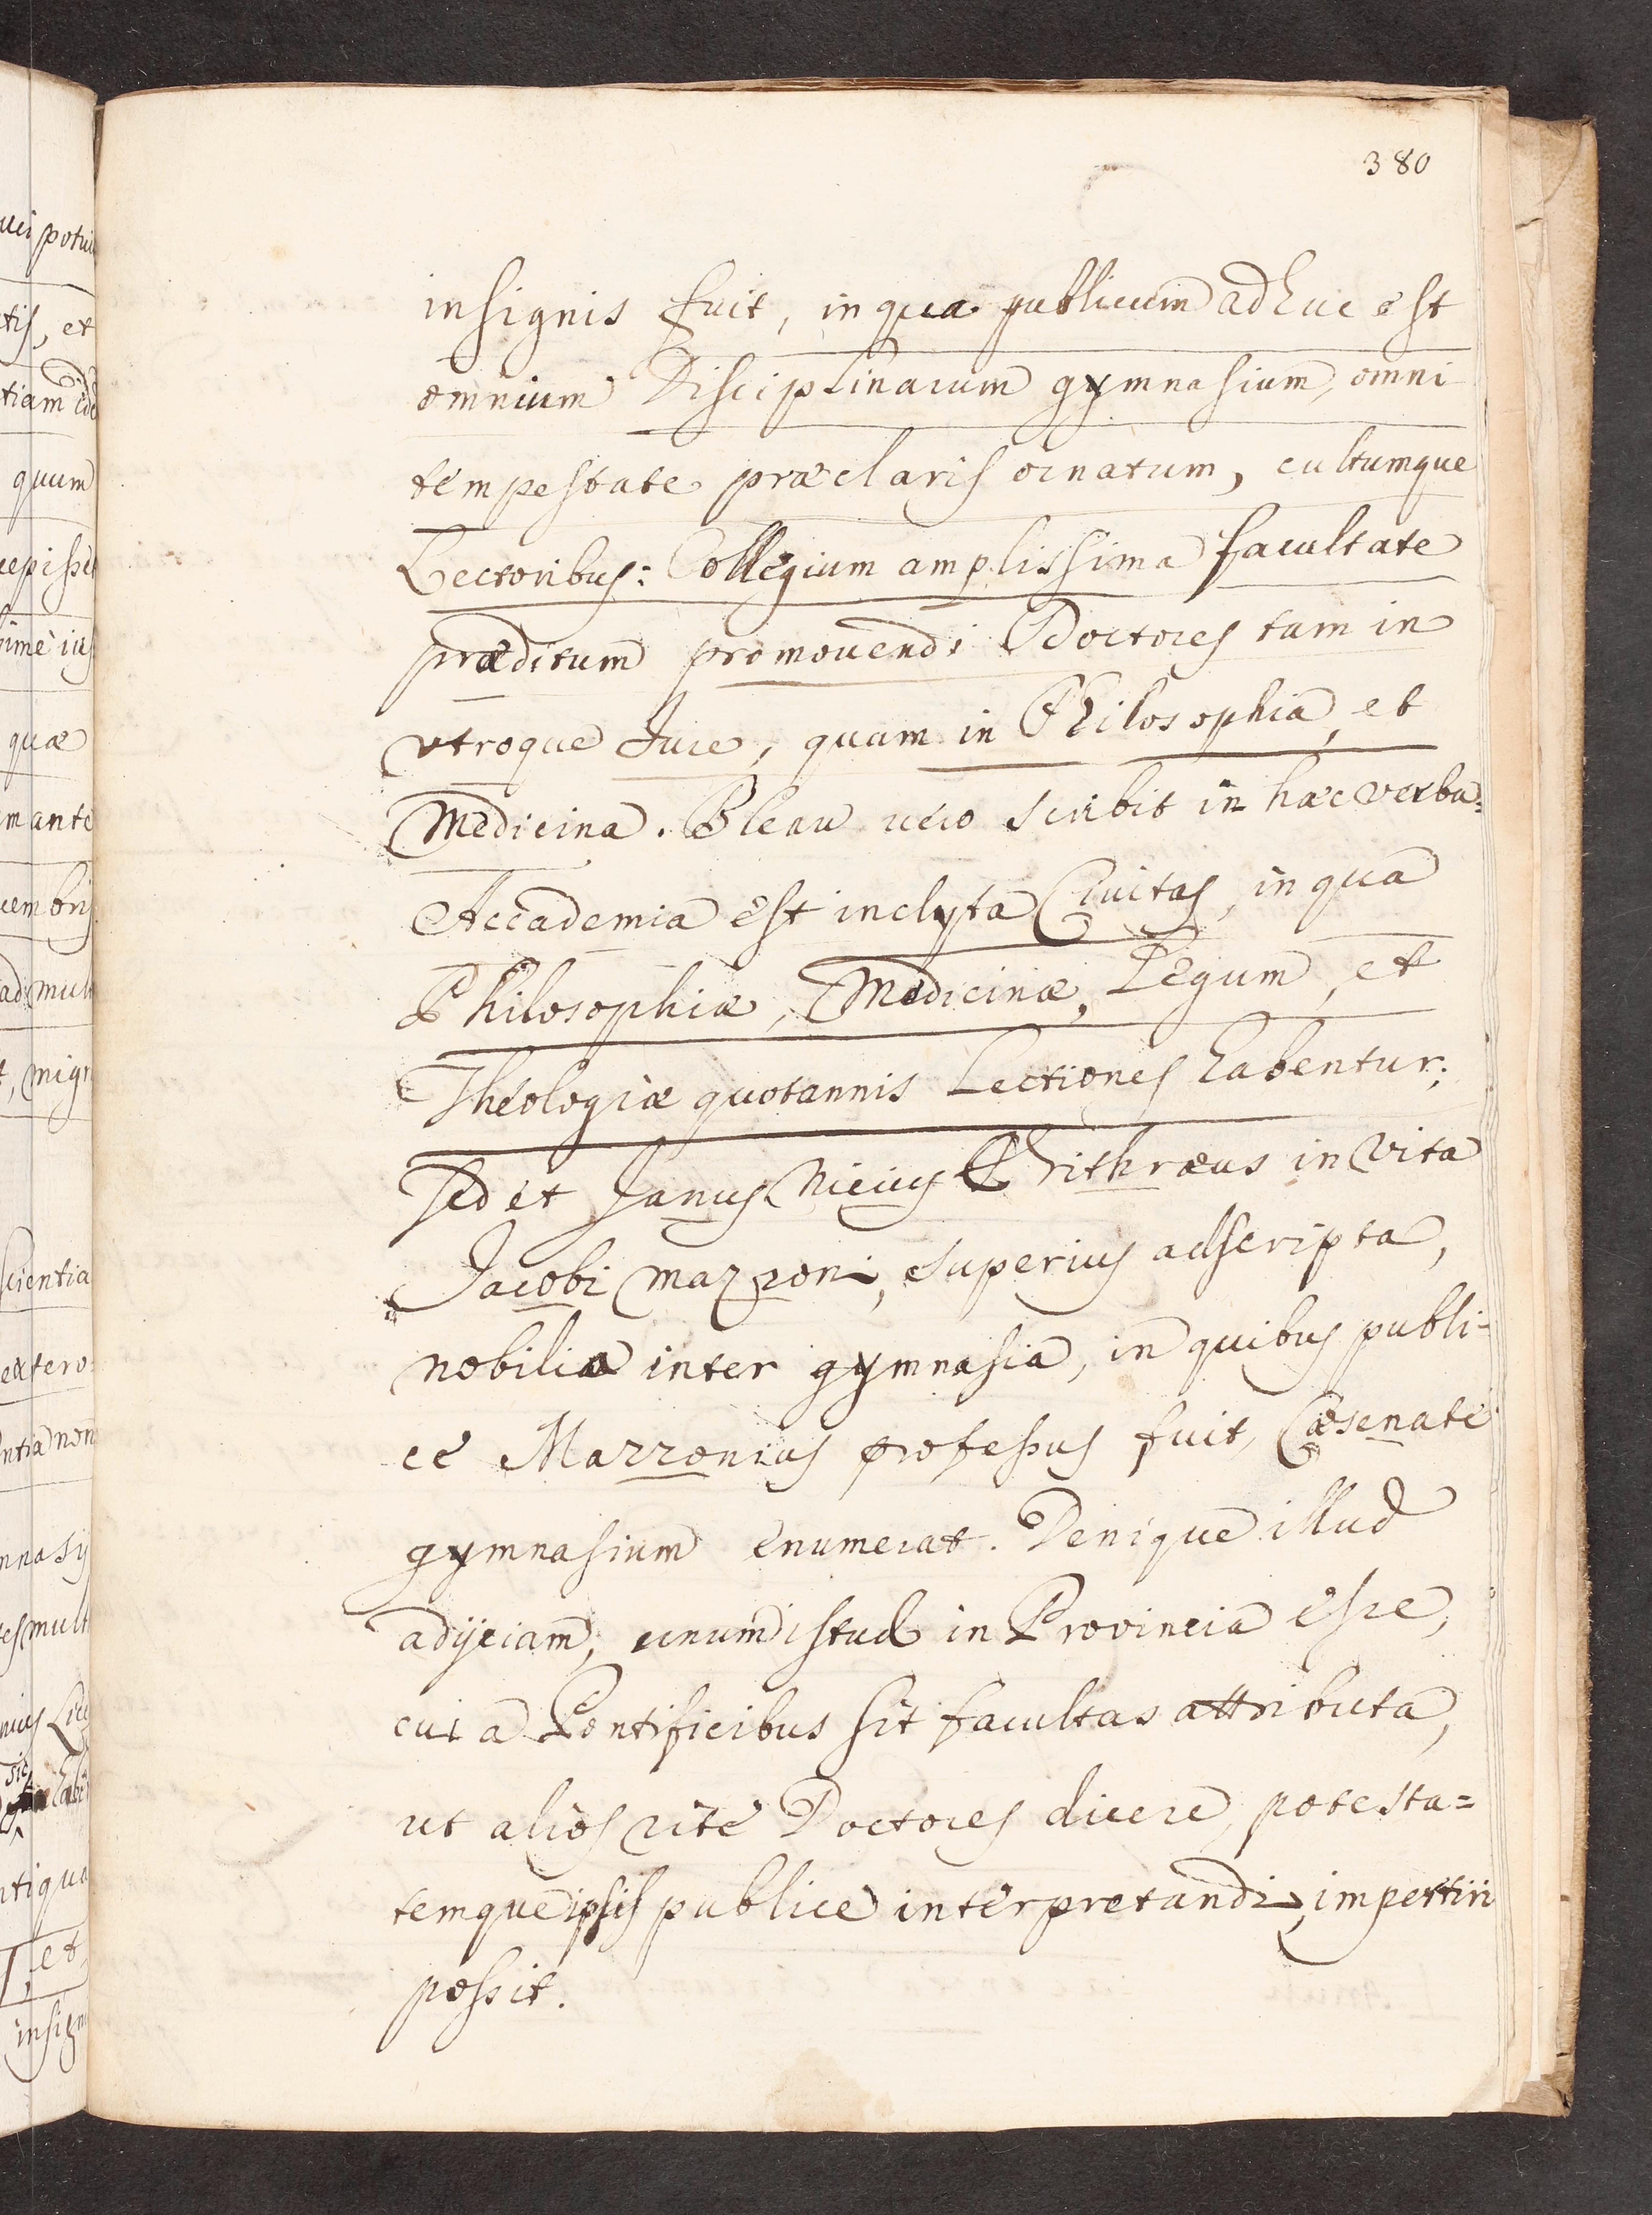 380
insignis fuit, in qua publicum adhuc est
omnium Disciplinarum gymnasium, omni
tempestate præclaris ornatum, cultumque
Lectoribus: Collegium amplissima facultate
præditum promouendi Doctores tam in
vtroque Jure, quam in Philosophia, et
Medicina. Bleau uero scribit in hæc verba:
Accademia est inclyta Ciuitas, in qua
Philosophiæ, Medicinæ, Legum, et
Theologiæ quotannis Lectiones habentur;
sed et Janus Nicius Erithræus in vita
Jacobi Mazzoni, superius adscripta,
nobilia inter gymnasia, in quibus publi-
cè Mazzonius professus fuit, Cæsenate
gymnasium enumerat. Denique illud
adijciam, unum istud in Provincia esse,
cui a Pontificibus sit facultas attributa,
ut alios ritè Doctores dicere, potesta=
temque ipsis publice interpretandi, impertiri
possit.